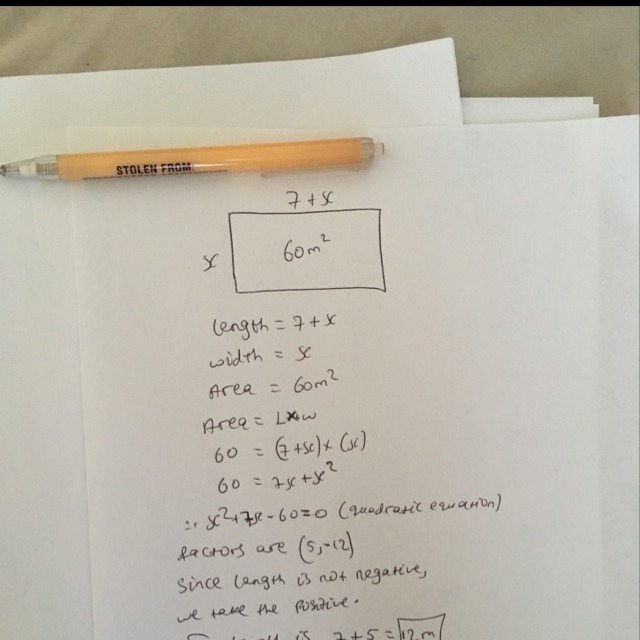 STOLEN FROM:
7 + x
x
60m²
length = 7 + x
width = x
Area = 60m²
Area = L×w
60 = (7+x)×(x)
60 = 7x + x²
∴ x²+7x-60=0 (quadratic equation)
factors are (5,-12)
Since length is not negative,
we take the positive.
7+5 = 12m